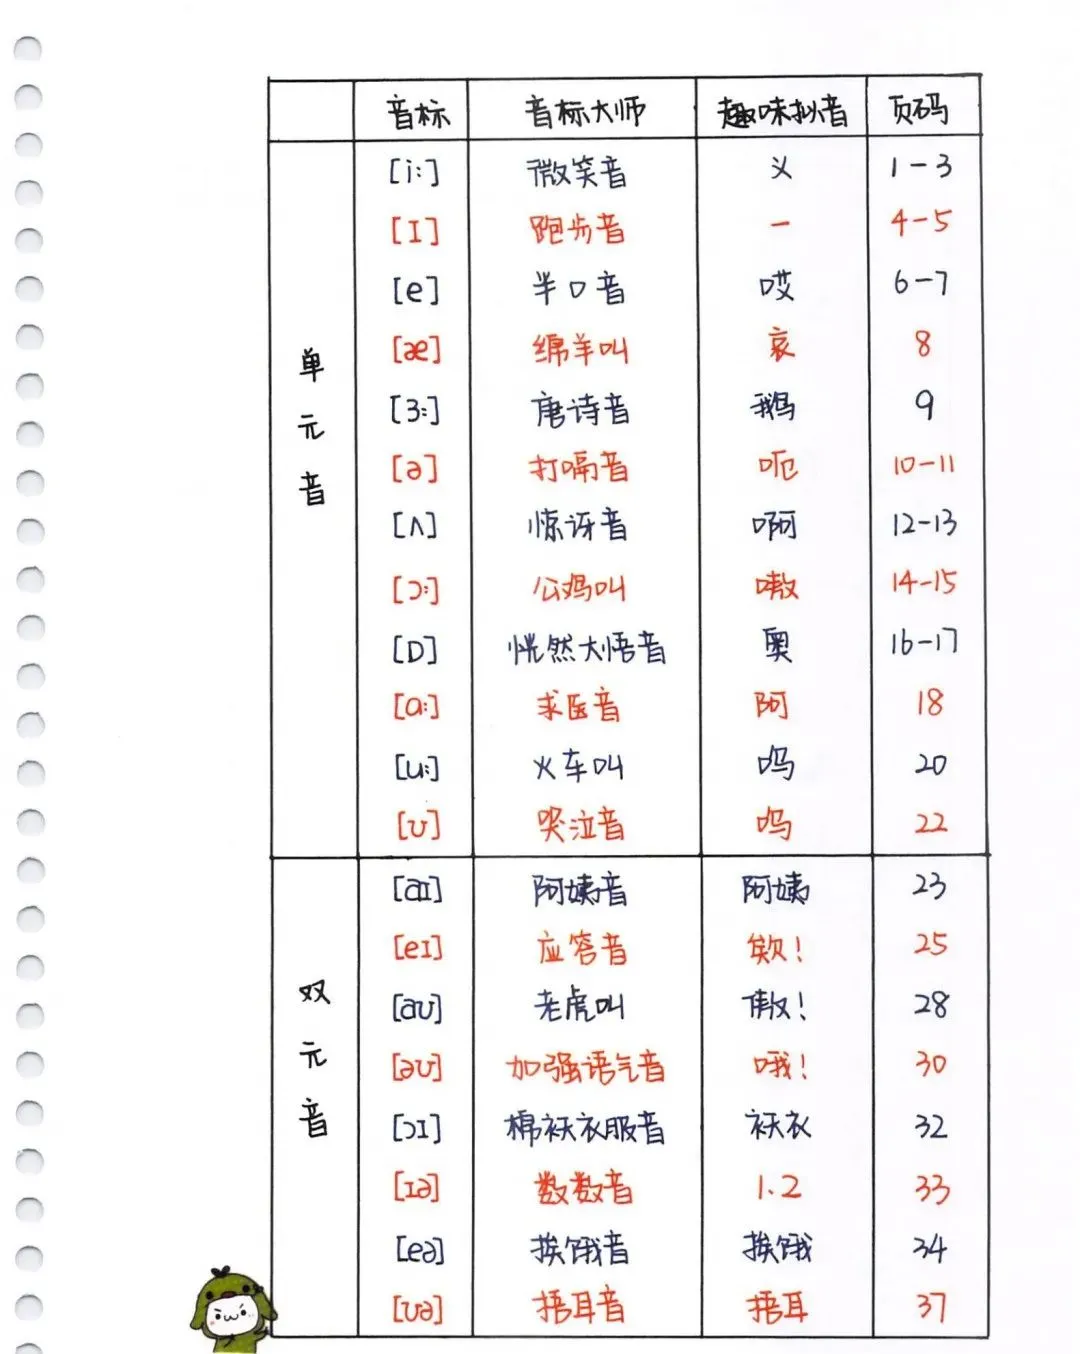 音标 音标大师 趣味拟音 页码
单元音
[i:] 微笑音 义 1-3
[I] 跑步音 一 4-5
[e] 半口音 哎 6-7
[æ] 绵羊叫 哀 8
[3:] 唐诗音 鹅 9
[ə] 打嗝音 呃 10-11
[ʌ] 惊讶音 啊 12-13
[ɔ:] 公鸡叫 嗷 14-15
[D] 恍然大悟音 奥 16-17
[a:] 求医音 阿 18
[u:] 火车叫 呜 20
[ʊ] 哭泣音 呜 22
双元音
[aɪ] 阿姨音 阿姨 23
[eɪ] 应答音 欸! 25
[aʊ] 老虎叫 傲! 28
[əʊ] 加强语气音 哦! 30
[ɔɪ] 棉袄衣服音 袄衣 32
[ɪə] 数数音 1.2 33
[eə] 挨饿音 挨饿 34
[ʊə] 捂耳音 捂耳 37